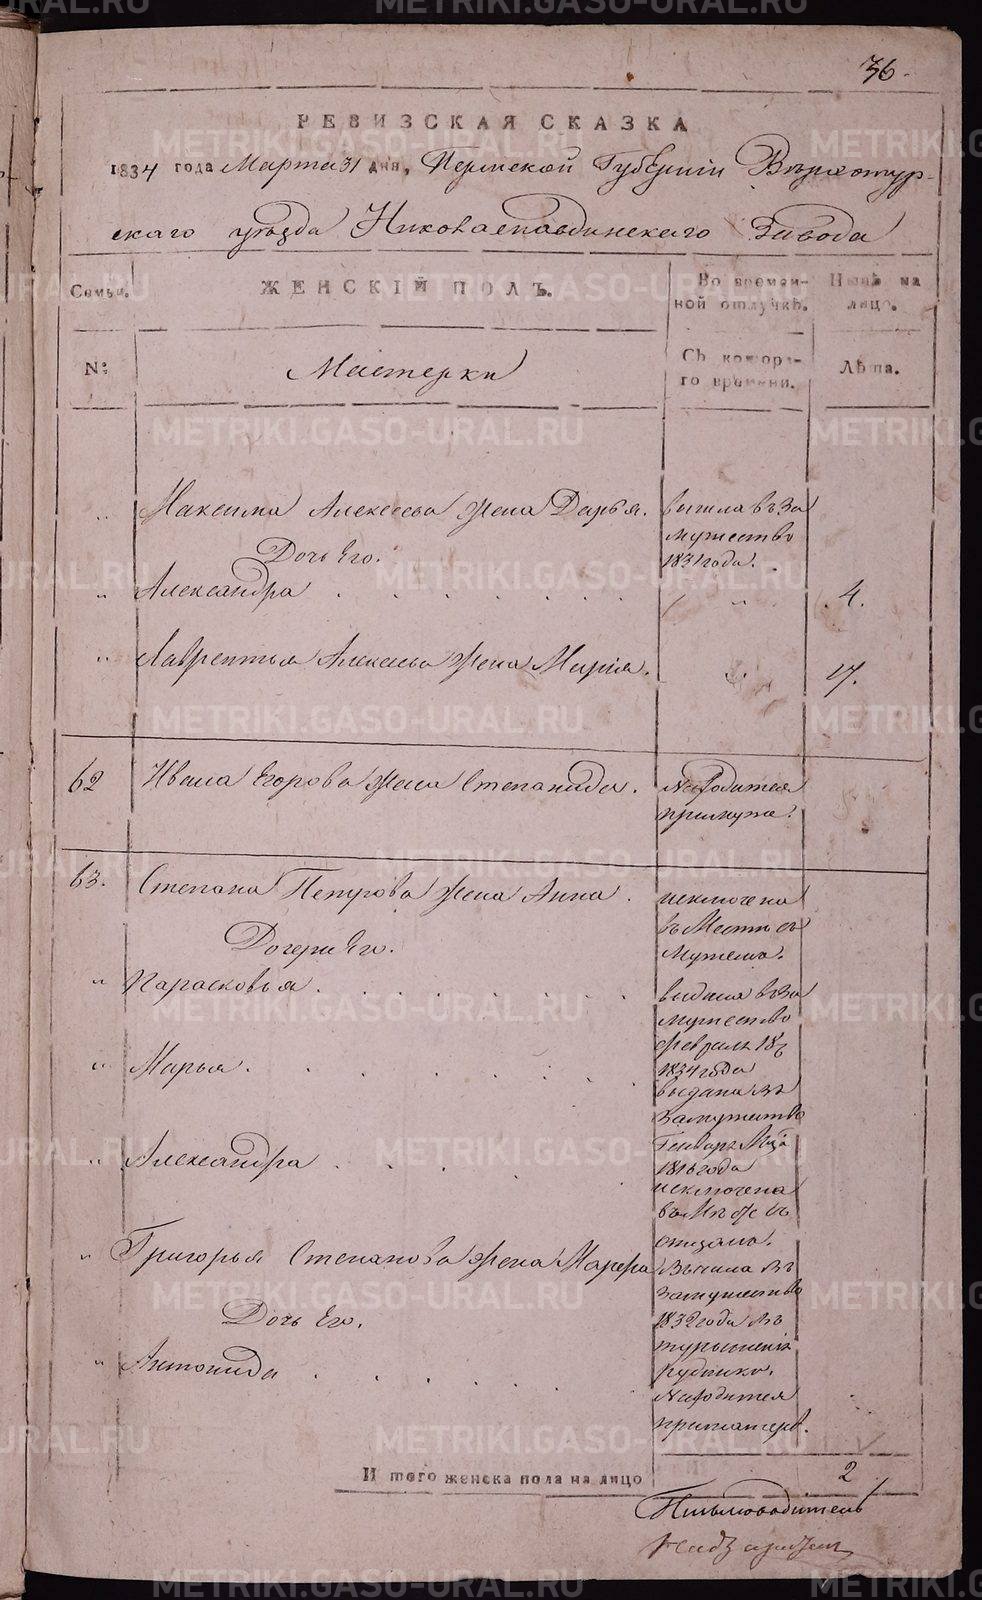 36.
РЕВИЗСКАЯ СКАЗКА
1834 года Марта 31 дня, Пермской Губерніи Верхотур-
скаго уѣзда Николаепавдинскаго Завода
Семьи.
ЖЕНСКІЙ ПОЛЪ.
Во времен-
ной отлучкѣ.
Нынѣ на
лицо.
№:
Мастерки
Съ котора-
го времени.
Лѣта.
" Максима Алексеева жена Дарья. вышла въ за
мужество
Дочь Его. 1831 года.
" Александра . . . . . . . " 4.
" Лаврентья Алексеева жена Марія. " 17.
62 Ивана Егорова жена Степанида. Находится
при муже.
63. Степана Петрова жена Анна. исключена
въ Месте съ
Дочери Его. Мужемъ.
" Парасковья . . . . . . . выдана въ За
мужество
Февраля
1834 года
" Марья . . . . . . . выдана въ
Замужество
Генваря
года
" Александра . . . исключена
въ
отцомъ.
" Григорья Степанова жена Вышла въ
замужество
Дочь Его. 1832 года въ
Рудники.
" Антонида . . . . . . Находится
при матере.
И того женска пола на лицо 2
Письмоводитель
METRIKI.GASO-URAL.RU